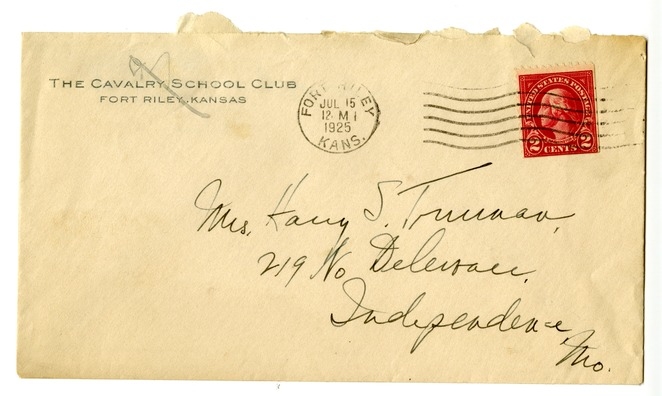 THE CAVALRY SCHOOL CLUB
FORT RILEY, KANSAS
FORT RILEY
JUL 15
12 M
1925
KANS.
UNITED STATES POSTAGE
2 CENTS 2
Mrs. Harry S. Truman,
219 No Delaware,
Independence,
Mo.